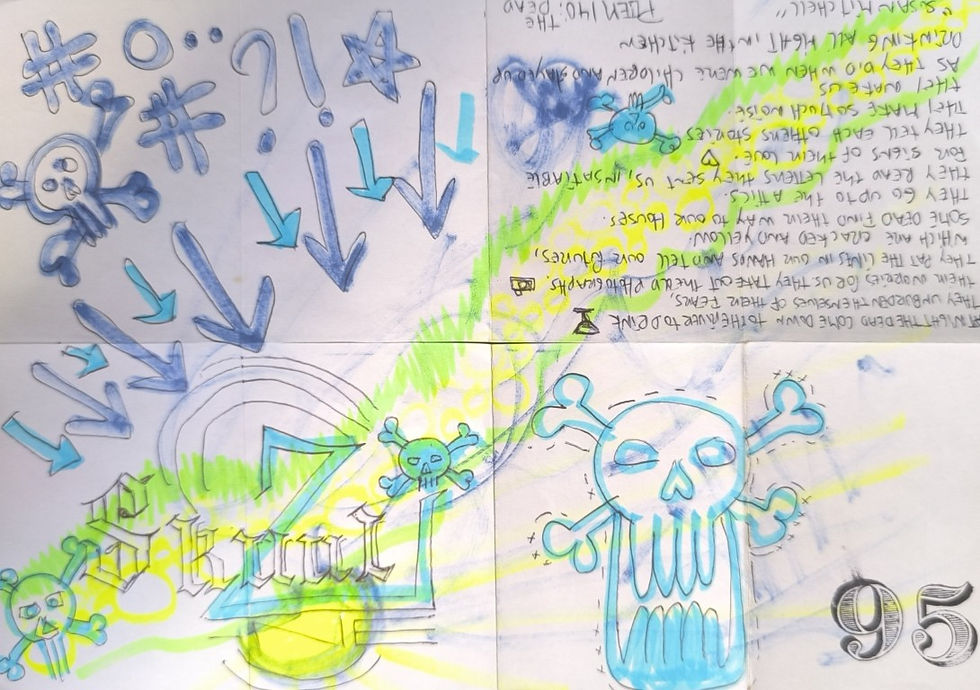 # O .. ? ! ☆
#
AT NIGHT THE DEAD COME DOWN TO THE RIVER TO DRINK
THEY UNBURDEN THEMSELVES OF THEIR FEARS,
THEIR WORRIES FOR US. THEY TAKE OUT THE OLD PHOTOGRAPHS.
THEY PAT THE LINES IN OUR HANDS AND TELL OUR FUTURES,
WHICH ARE CRACKED AND YELLOW.
SOME DEAD FIND THEIR WAY TO OUR HOUSES.
THEY GO UP TO THE ATTICS.
THEY READ THE LETTERS THEY SENT US, INSATIABLE
FOR SIGNS OF THEIR LOVE.
THEY TELL EACH OTHERS STORIES
THEY MAKE SO MUCH NOISE.
THEY WAKE US
AS THEY DID WHEN WE WERE CHILDREN AND STAYED UP
DRINKING ALL NIGHT IN THE KITCHEN
"SUSAN MITCHELL"
POEM 140: THE
DEAD
95